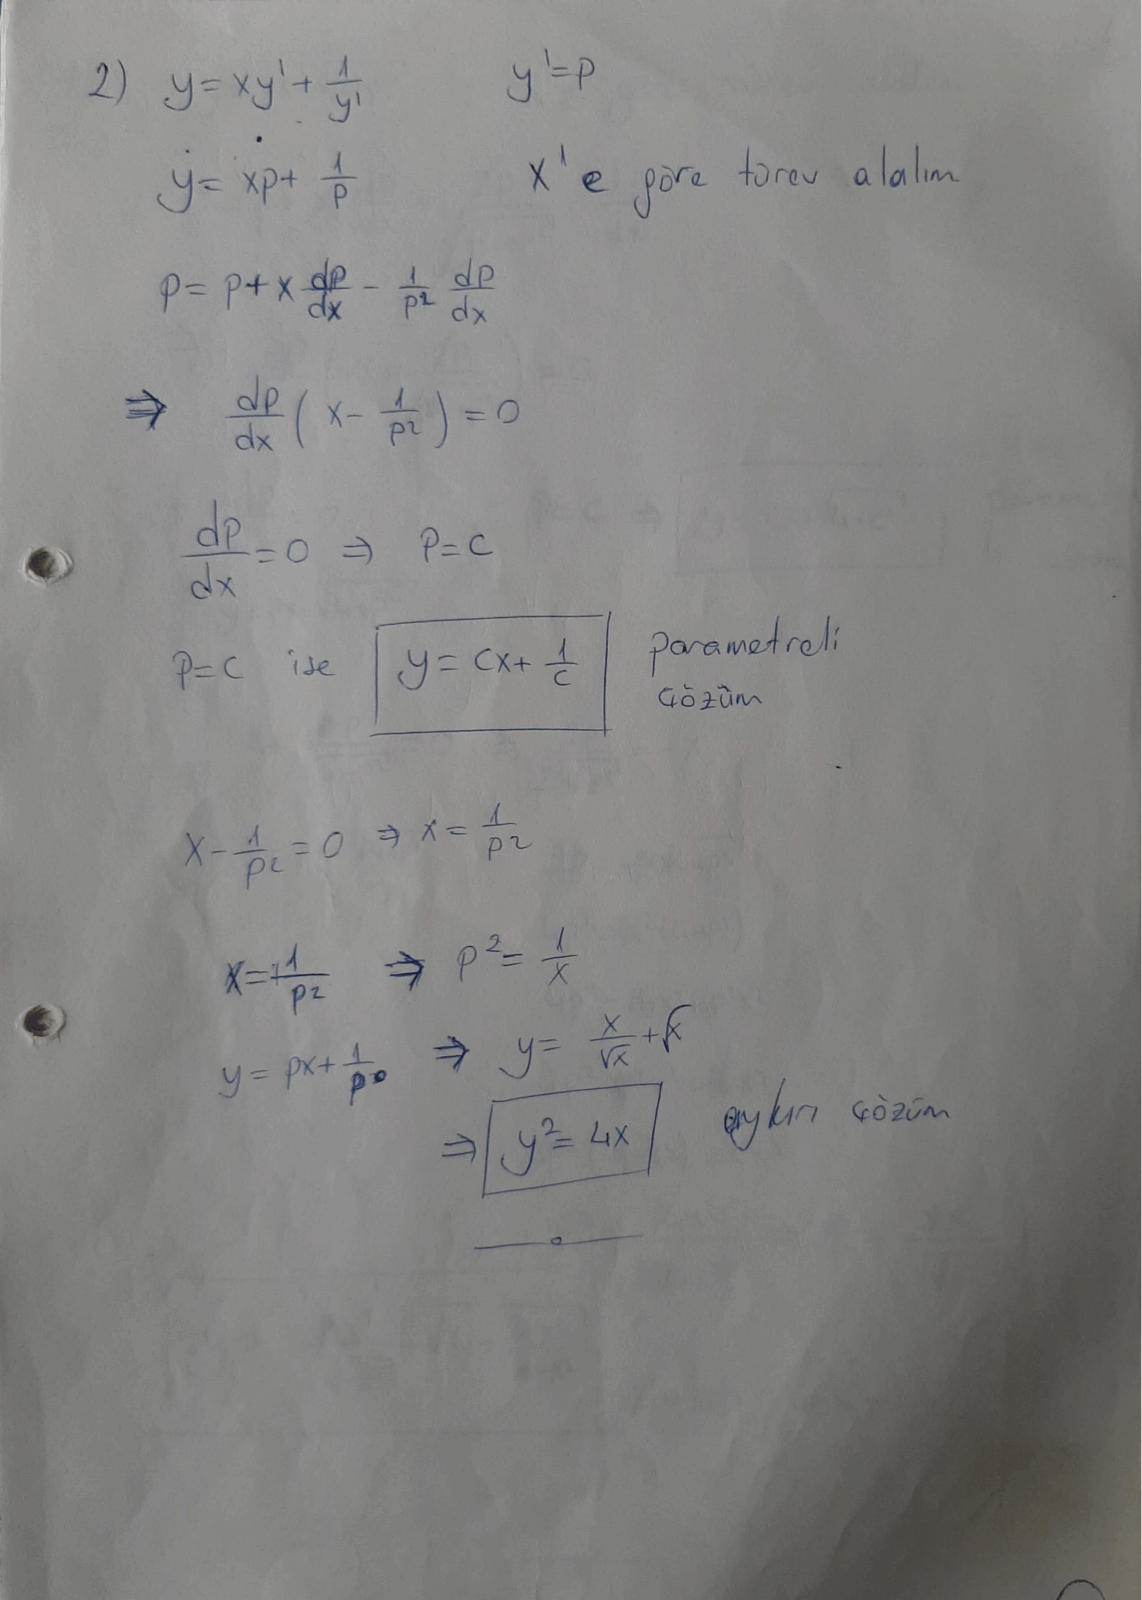 2) y = xy' + 1/y' y' = p
y = xp + 1/p x'e göre türev alalım
p = p + x dp/dx - 1/p² dp/dx
⇒ dp/dx ( x - 1/p² ) = 0
dp/dx = 0 ⇒ p = c
p = c ise y = cx + 1/c parametreli
çözüm
x - 1/p² = 0 ⇒ x = 1/p²
x = 1/p² ⇒ p² = 1/x
y = px + 1/p ⇒ y = x/√x + √x
⇒ y² = 4x aykırı çözüm